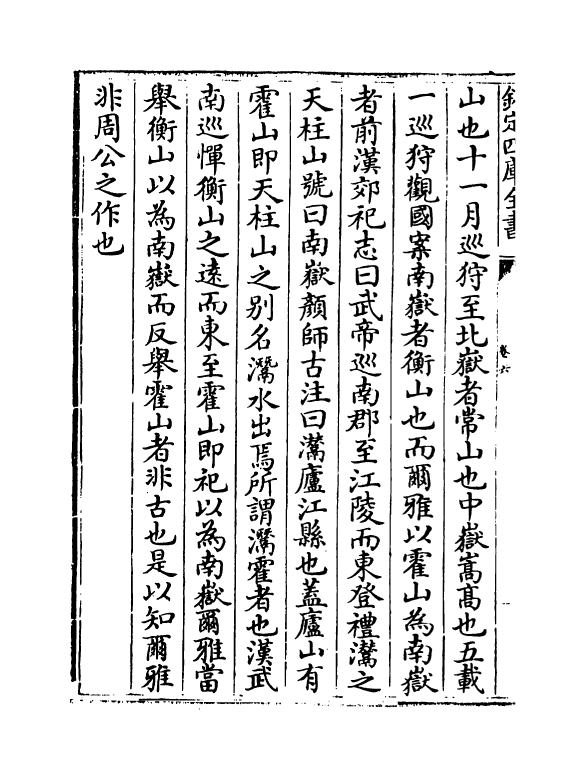 欽定四庫全書
卷六
山也十一月巡狩至北嶽者常山也中嶽嵩髙也五載
一巡狩觀國案南嶽者衡山也而爾雅以霍山為南嶽
者前漢郊祀志曰武帝巡南郡至江陵而東登禮灊之
天柱山號曰南嶽顔師古注曰灊廬江縣也葢廬山有
霍山即天柱山之别名灊水出焉所謂灊霍者也漢武
南巡憚衡山之逺而東至霍山即祀以為南嶽爾雅當
舉衡山以為南嶽而反舉霍山者非古也是以知爾雅
非周公之作也